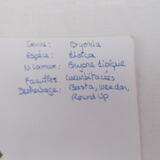 Genre: Bryonia
Espèce: dioïca
N. commun: Bryone dioïque
Famille: Cucurbitacées
Désherbage: Basta, weedar,
Round Up